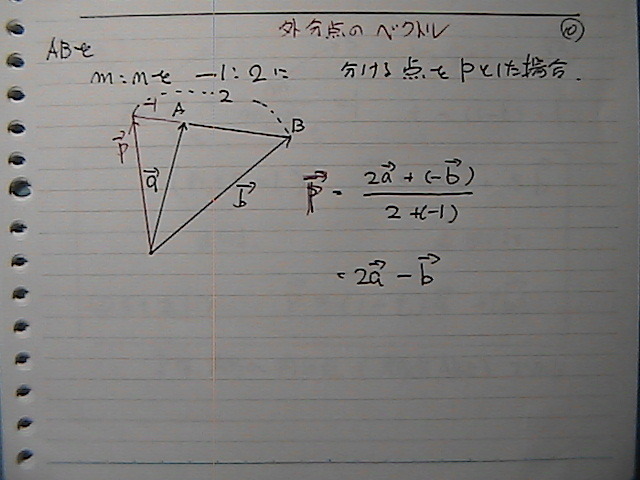 外分点のベクトル ⑩
ABを
m:nを -1:2に 分ける点をPとした場合.
-1 A 2 B
p→ a→ b→
p→ = 2a→ + (-b→) / 2 + (-1)
= 2a→ - b→